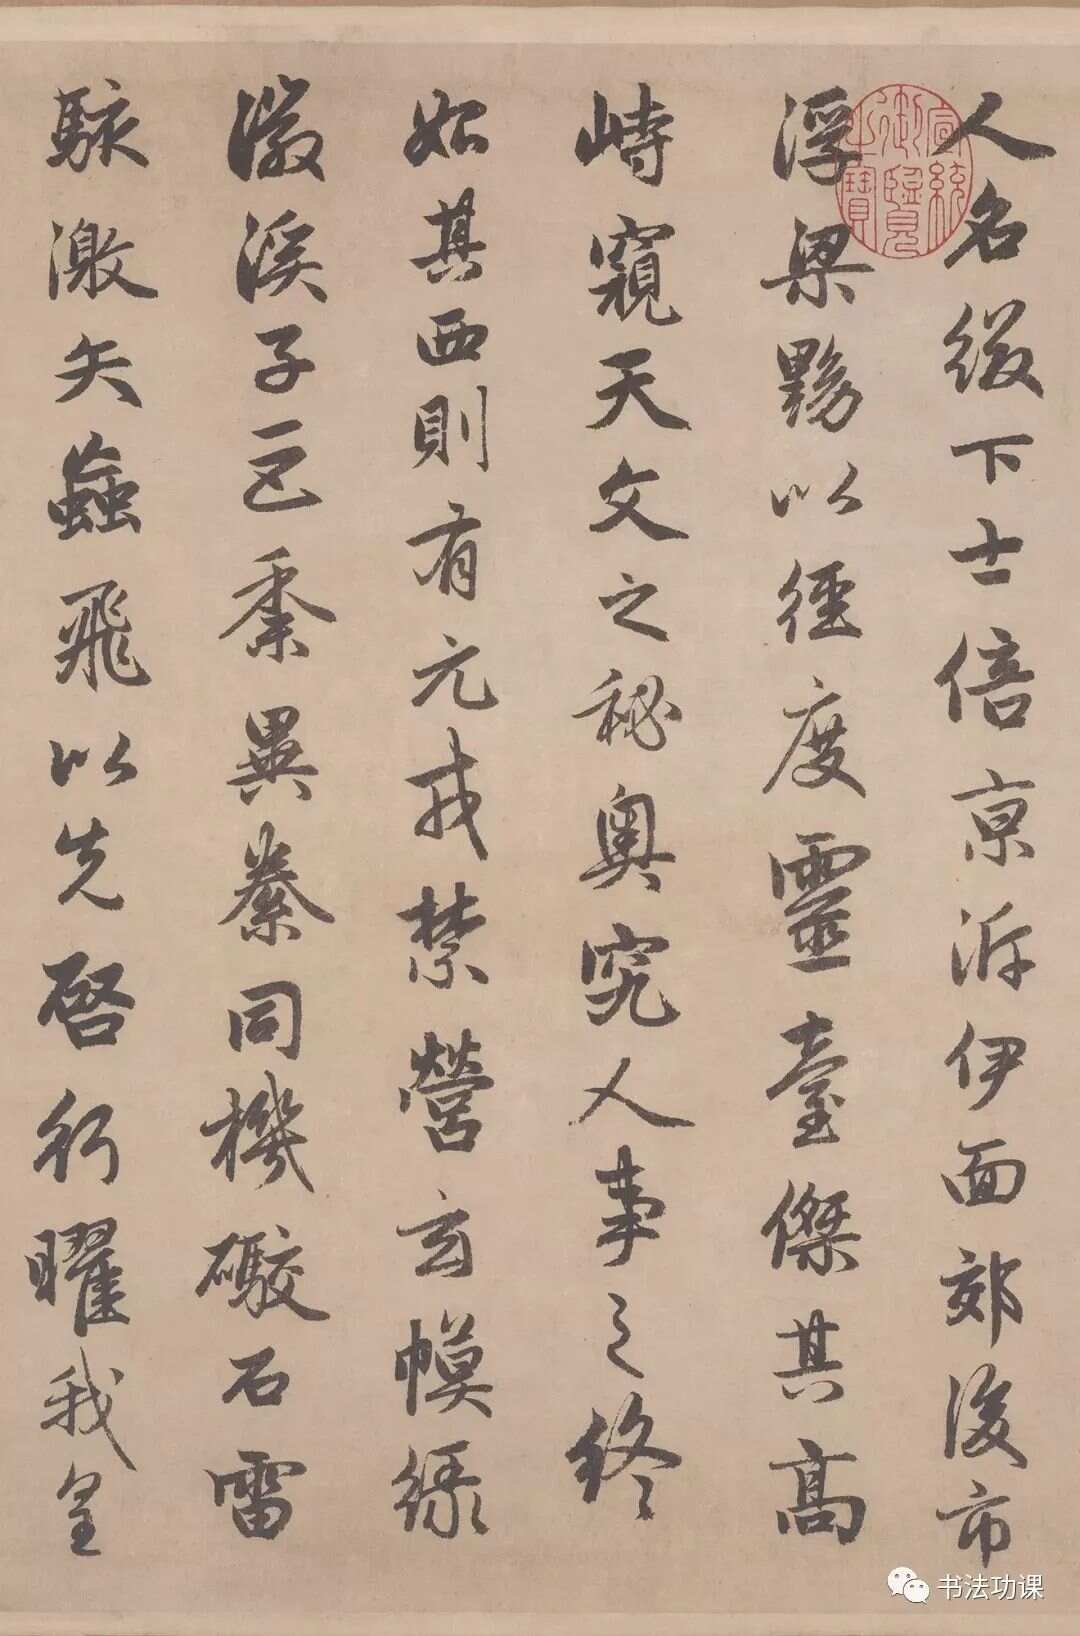 人名綴下士倍京泝伊面郊後市
浮梁黝以徑度靈臺傑其高
峙窺天文之秘奧究人事之終
始其西則有元戎禁營玄幙綠
徽溪子巨黍異絭同機礮石雷
駭激矢蝱飛以先啓行曜我皇
宣統御覽之寶
书法功课